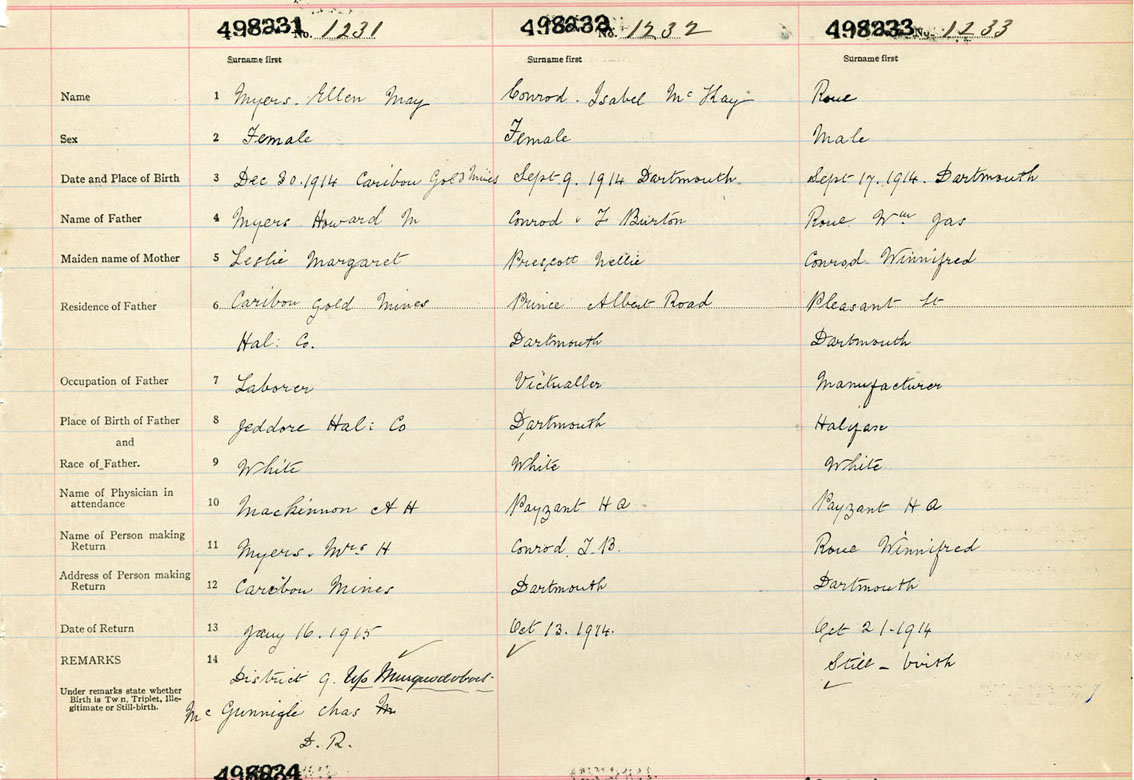 498231 No. 1231 498232 No. 1232 498233 No. 1233
Surname first Surname first Surname first
Name 1 Myers. Ellen May Conrod. Isabel Mc Kay Roue
Sex 2 Female Female Male
Date and Place of Birth 3 Dec 30. 1914 Caribou Gold Mines Sept 9. 1914 Dartmouth. Sept 17. 1914. Dartmouth
Name of Father 4 Myers Howard M Conrod F Burton Roue Wm Jas
Maiden name of Mother 5 Leslie Margaret Prescott Nellie Conrod. Winnifred
Residence of Father 6 Caribou Gold Mines Prince Albert Road Pleasant St
Hal: Co. Dartmouth Dartmouth
Occupation of Father 7 Laborer Victualler Manufacturer
Place of Birth of Father 8 Jeddore Hal: Co Dartmouth Halifax
and
Race of Father. 9 White White White
Name of Physician in
attendance 10 Mackinnon A H Payzant H A Payzant H A
Name of Person making
Return 11 Myers. Mrs H Conrod. F. B. Roue Winnifred
Address of Person making
Return 12 Caribou Mines Dartmouth Dartmouth
Date of Return 13 Jany 16. 1915 Oct 13. 1914. Oct 21-1914
REMARKS 14 District 9. Up Musquodoboit Still-birth
Under remarks state whether
Birth is Twin, Triplet, Ille-
gitimate or Still-birth.
Mc Gunnigle Chas M
D. R.
498234